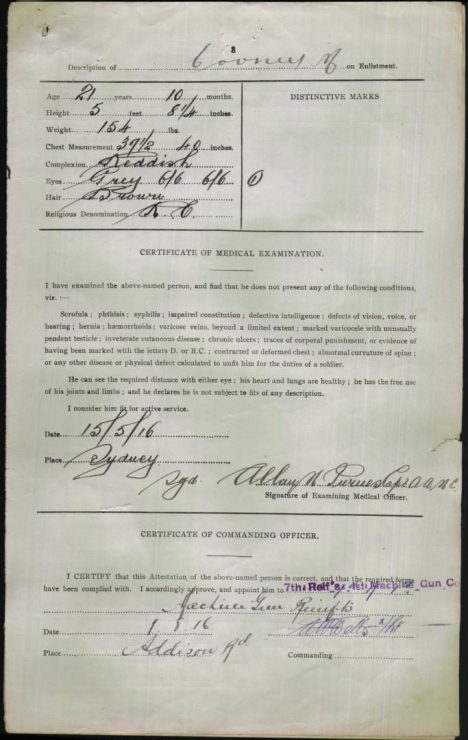 3
Description of Cooney M on Enlistment.
Age 21 years 10 months.
Height 5 feet 8 1/4 inches.
Weight 154 lbs.
Chest Measurement 37 1/2 40 inches.
Complexion Reddish
Eyes Grey 6/6 6/6
Hair Brown
Religious Denomination R. C.
DISTINCTIVE MARKS
CERTIFICATE OF MEDICAL EXAMINATION.
I have examined the above-named person, and find that he does not present any of the following conditions,
viz. :—
Scrofula ; phthisis ; syphilis ; impaired constitution ; defective intelligence ; defects of vision, voice, or
hearing ; hernia ; hæmorrhoids ; varicose veins, beyond a limited extent ; marked varicocele with unusually
pendent testicle ; inveterate cutaneous disease ; chronic ulcers ; traces of corporal punishment, or evidence of
having been marked with the letters D. or B.C. ; contracted or deformed chest ; abnormal curvature of spine ;
or any other disease or physical defect calculated to unfit him for the duties of a soldier.
He can see the required distance with either eye ; his heart and lungs are healthy ; he has the free use
of his joints and limbs ; and he declares he is not subject to fits of any description.
I consider him fit for active service.
Date 15/5/16
Place Sydney
sgd. Allan N Capt A.A.M.C.
Signature of Examining Medical Officer.
CERTIFICATE OF COMMANDING OFFICER.
I CERTIFY that this Attestation of the above-named person is correct, and that the required forms
have been complied with. I accordingly approve, and appoint him to 7th Reif's. 1st Machine Gun Co
Machine Gun Reinfts
Date 5 16
Place Addison Rd
Commanding